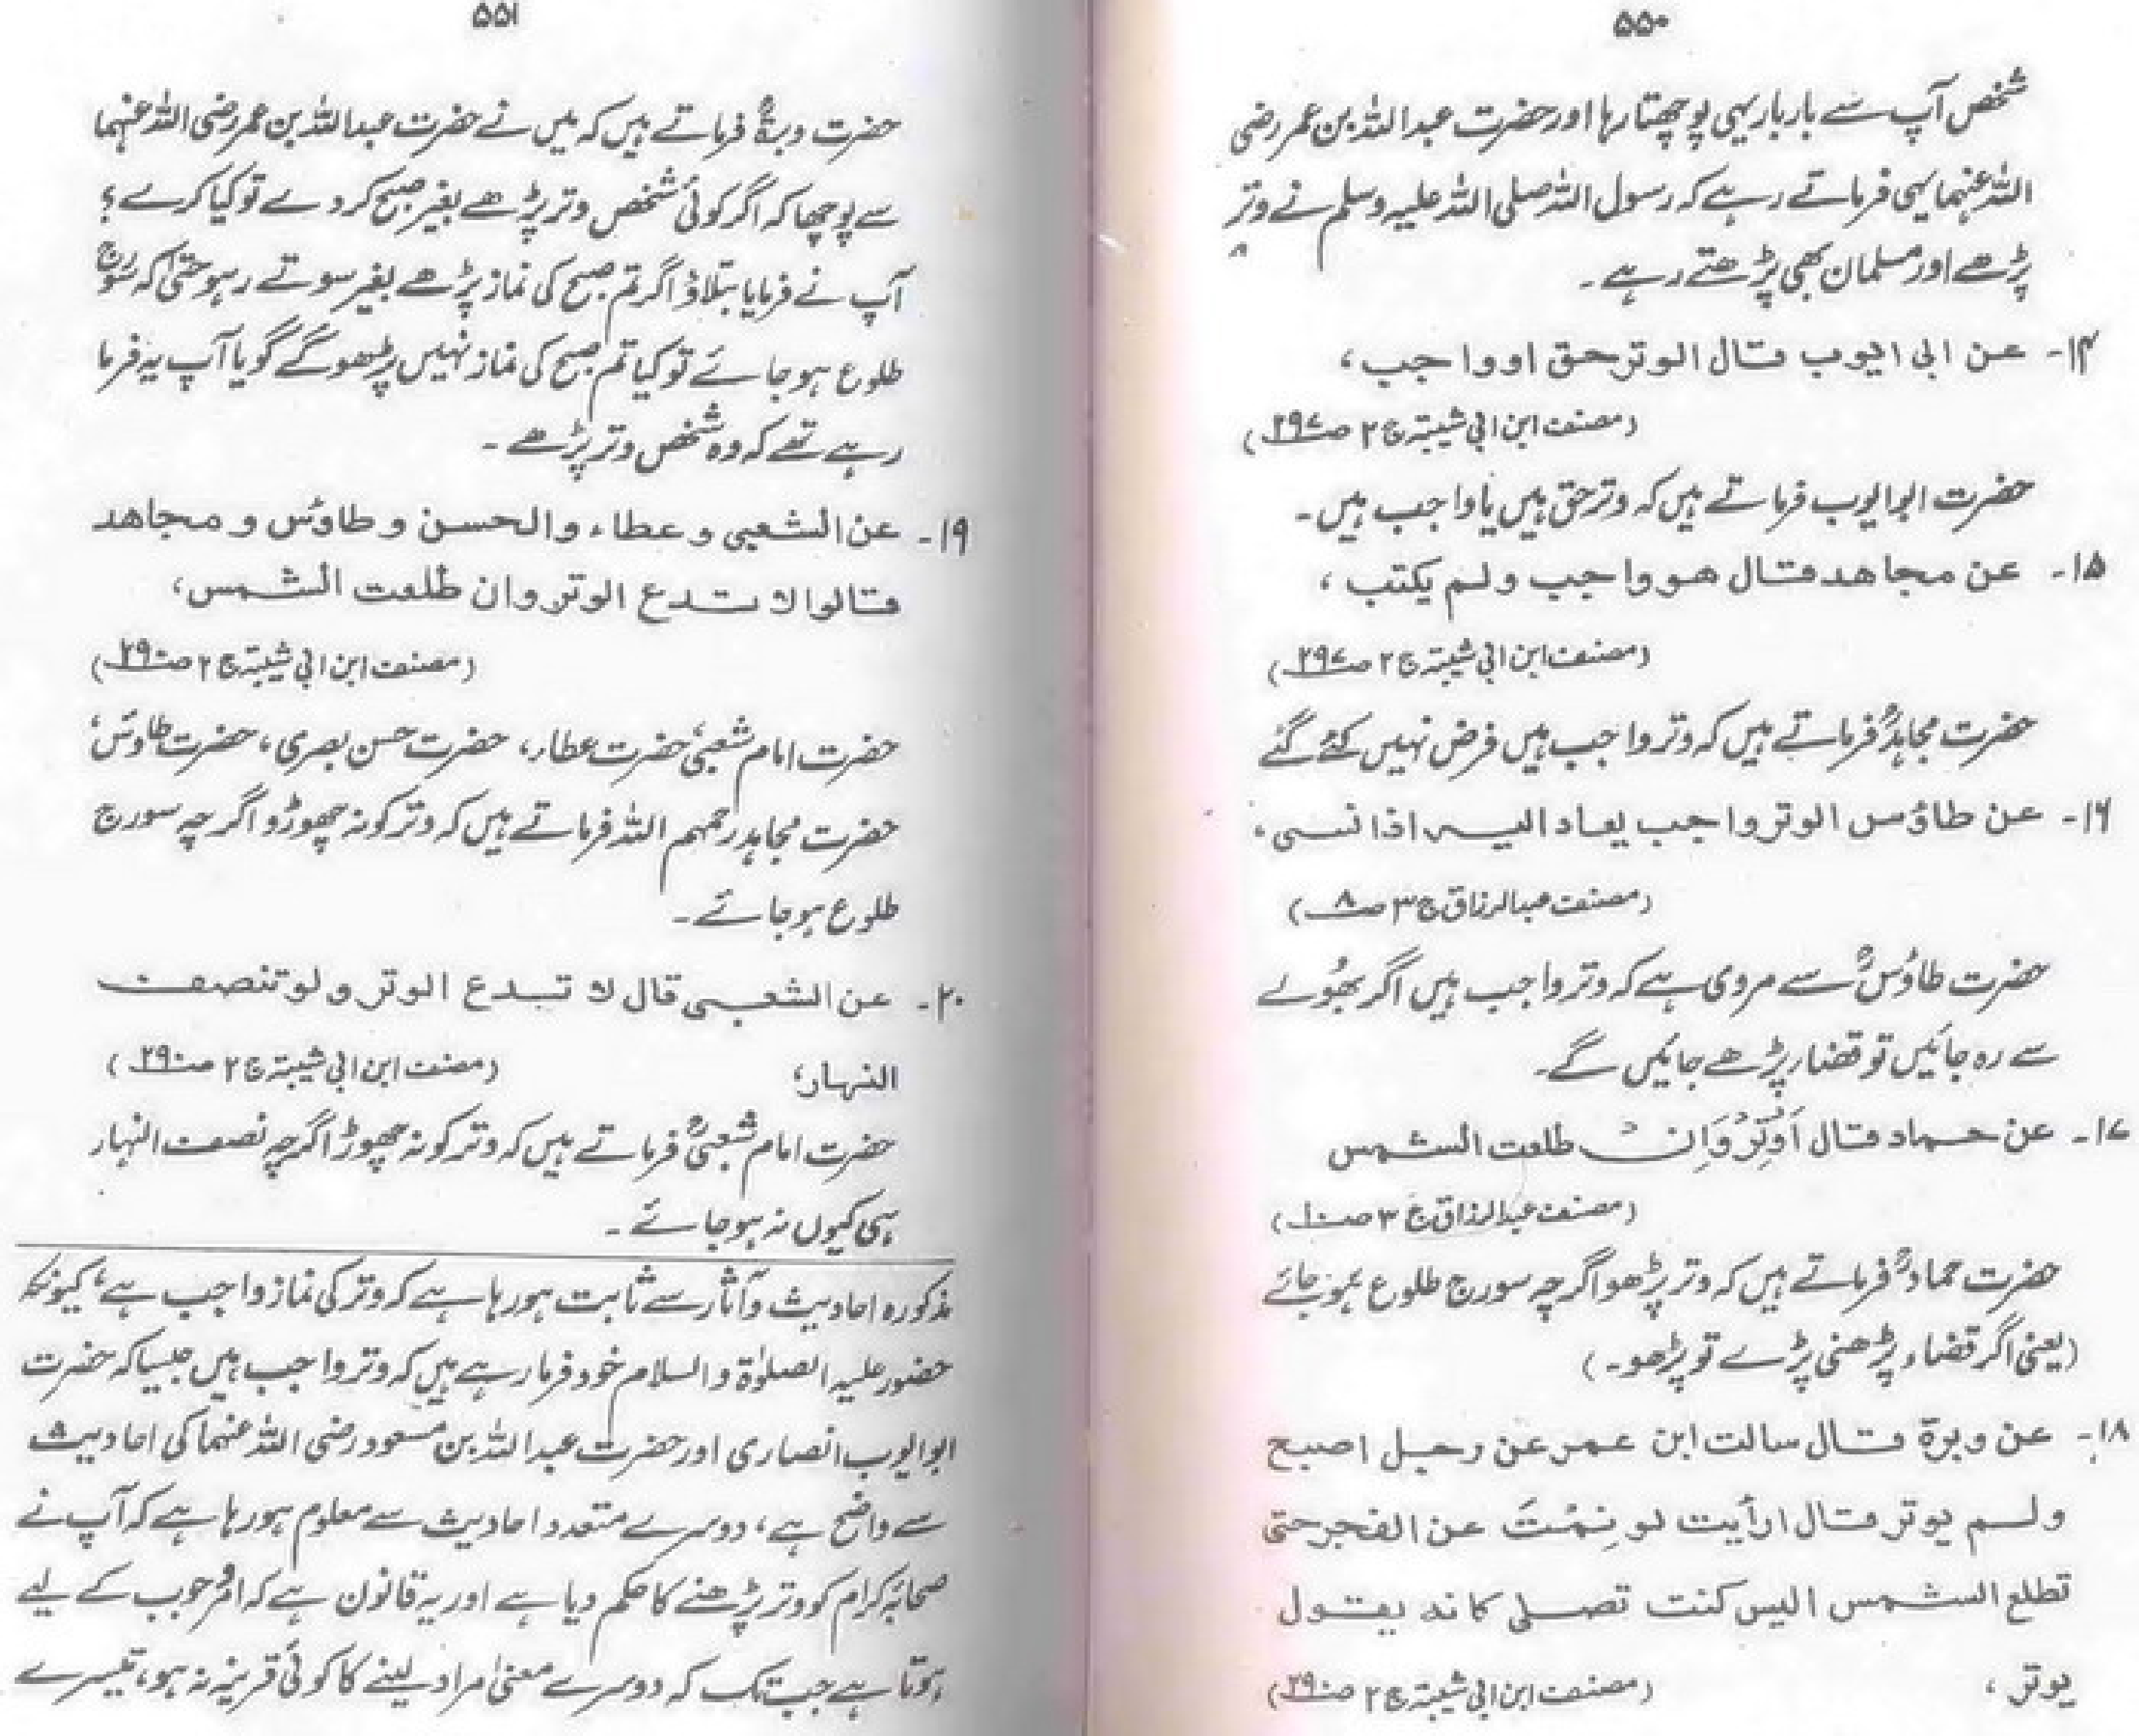 ۵۵۰
شخص آپ سے بار بار یہی پوچھتا رہا اور حضرت عبداللہ بن عمر رضی
اللہ عنہما یہی فرماتے رہے کہ رسول اللہ صلی اللہ علیہ وسلم نے وتر
پڑھے اور مسلمان بھی پڑھتے رہے۔
۱۴۔ عن ابی ایوب قال الوتر حق او واجب،
(مصنف ابن ابی شیبۃ ج ۲ ص ۲۹۷)
حضرت ابو ایوب فرماتے ہیں کہ وتر حق ہیں یا واجب ہیں۔
۱۵۔ عن مجاهد قال هو واجب ولم یکتب،
(مصنف ابن ابی شیبۃ ج ۲ ص ۲۹۷)
حضرت مجاہدؒ فرماتے ہیں کہ وتر واجب ہیں فرض نہیں کئے گئے
۱۶۔ عن طاؤس الوتر واجب یعاد الیہ اذا نسی،
(مصنف عبدالرزاق ج ۳ ص ۸)
حضرت طاؤسؒ سے مروی ہے کہ وتر واجب ہیں اگر بھُولے
سے رہ جائیں تو قضاء پڑھے جائیں گے۔
۱۷۔ عن حماد قال اَوْتِرْ وَاِنْ طلعت الشمس
(مصنف عبدالرزاق ج ۳ ص ۱۰)
حضرت حمادؒ فرماتے ہیں کہ وتر پڑھو اگرچہ سورج طلوع ہو جائے
(یعنی اگر قضاء پڑھنی پڑے تو پڑھو۔)
۱۸۔ عن وبرۃ قال سالت ابن عمر عن رجل اصبح
ولم یوتر قال ارأیت لو نِمْتَ عن الفجر حتی
تطلع الشمس الیس کنت تصلی کانہ یقول
یوتر، (مصنف ابن ابی شیبۃ ج ۲ ص ۲۹۰)
۵۵۱
حضرت وبرۃؒ فرماتے ہیں کہ میں نے حضرت عبداللہ بن عمر رضی اللہ عنہما
سے پوچھا کہ اگر کوئی شخص وتر پڑھے بغیر صبح کر دے تو کیا کرے؟
آپ نے فرمایا بتلاؤ اگر تم صبح کی نماز پڑھے بغیر سوتے رہو حتیٰ کہ سورج
طلوع ہو جائے تو کیا تم صبح کی نماز نہیں پڑھو گے گویا آپ یہ فرما
رہے تھے کہ وہ شخص وتر پڑھے۔
۱۹۔ عن الشعبی و عطاء والحسن و طاؤس و مجاهد
قالوا لا تدع الوتر وان طلعت الشمس،
(مصنف ابن ابی شیبۃ ج ۲ ص ۲۹۰)
حضرت امام شعبیؒ، حضرت عطاء، حضرت حسن بصری، حضرت طاؤس،
حضرت مجاہد رحمہم اللہ فرماتے ہیں کہ وتر کو نہ چھوڑو اگرچہ سورج
طلوع ہو جائے۔
۲۰۔ عن الشعبی قال لا تدع الوتر ولو تنصف
النہار، (مصنف ابن ابی شیبۃ ج ۲ ص ۲۹۰)
حضرت امام شعبیؒ فرماتے ہیں کہ وتر کو نہ چھوڑ اگرچہ نصف النہار
ہی کیوں نہ ہو جائے۔
مذکورہ احادیث و آثار سے ثابت ہو رہا ہے کہ وتر کی نماز واجب ہے، کیونکہ
حضور علیہ الصلوٰۃ والسلام خود فرما رہے ہیں کہ وتر واجب ہیں جیسا کہ حضرت
ابو ایوب انصاری اور حضرت عبداللہ بن مسعود رضی اللہ عنہما کی احادیث
سے واضح ہے، دوسرے متعدد احادیث سے معلوم ہو رہا ہے کہ آپ نے
صحابہ کرام کو وتر پڑھنے کا حکم دیا ہے اور یہ قانون ہے کہ امر وجوب کے لیے
ہوتا ہے جب تک کہ دوسرے معنیٰ مراد لینے کا کوئی قرینہ نہ ہو، تیسرے